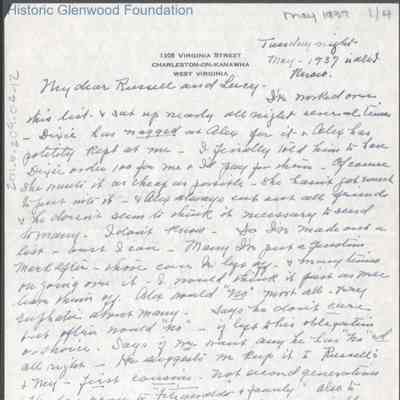 Historic Glenwood Foundation
May 1937 1/4
1508 VIRGINIA STREET
CHARLESTON-ON-KANAWHA
WEST VIRGINIA
Tuesday night
May - 1937
My dear Russell and Lucy -
I've worked over
this list & sat up nearly all night several times
- Dixie has nagged at Alex for it & Alex has
politely kept at me - I finally told him to have
Dixie order 100 for me & I'd pay for them. Of course
She wants it as cheap as possible - She hasn't
to put into it - & Alex always cuts out all friends
& he doesn't seem to think it necessary to send
to many. I don't know - So I've made out a
list - best I can - Many I've put a question
mark after - those even I'd let go - & many times
on going over it - I would think it just as well
leave them off. Alex would "No" most all - very
emphatic about many - Says he don't care
but often would "No" - if left this obligation
or choice. Says if we want any he has "No"d
all right - He suggests we keep it to Russell's
& my - first cousins - not second generations
& family" also to